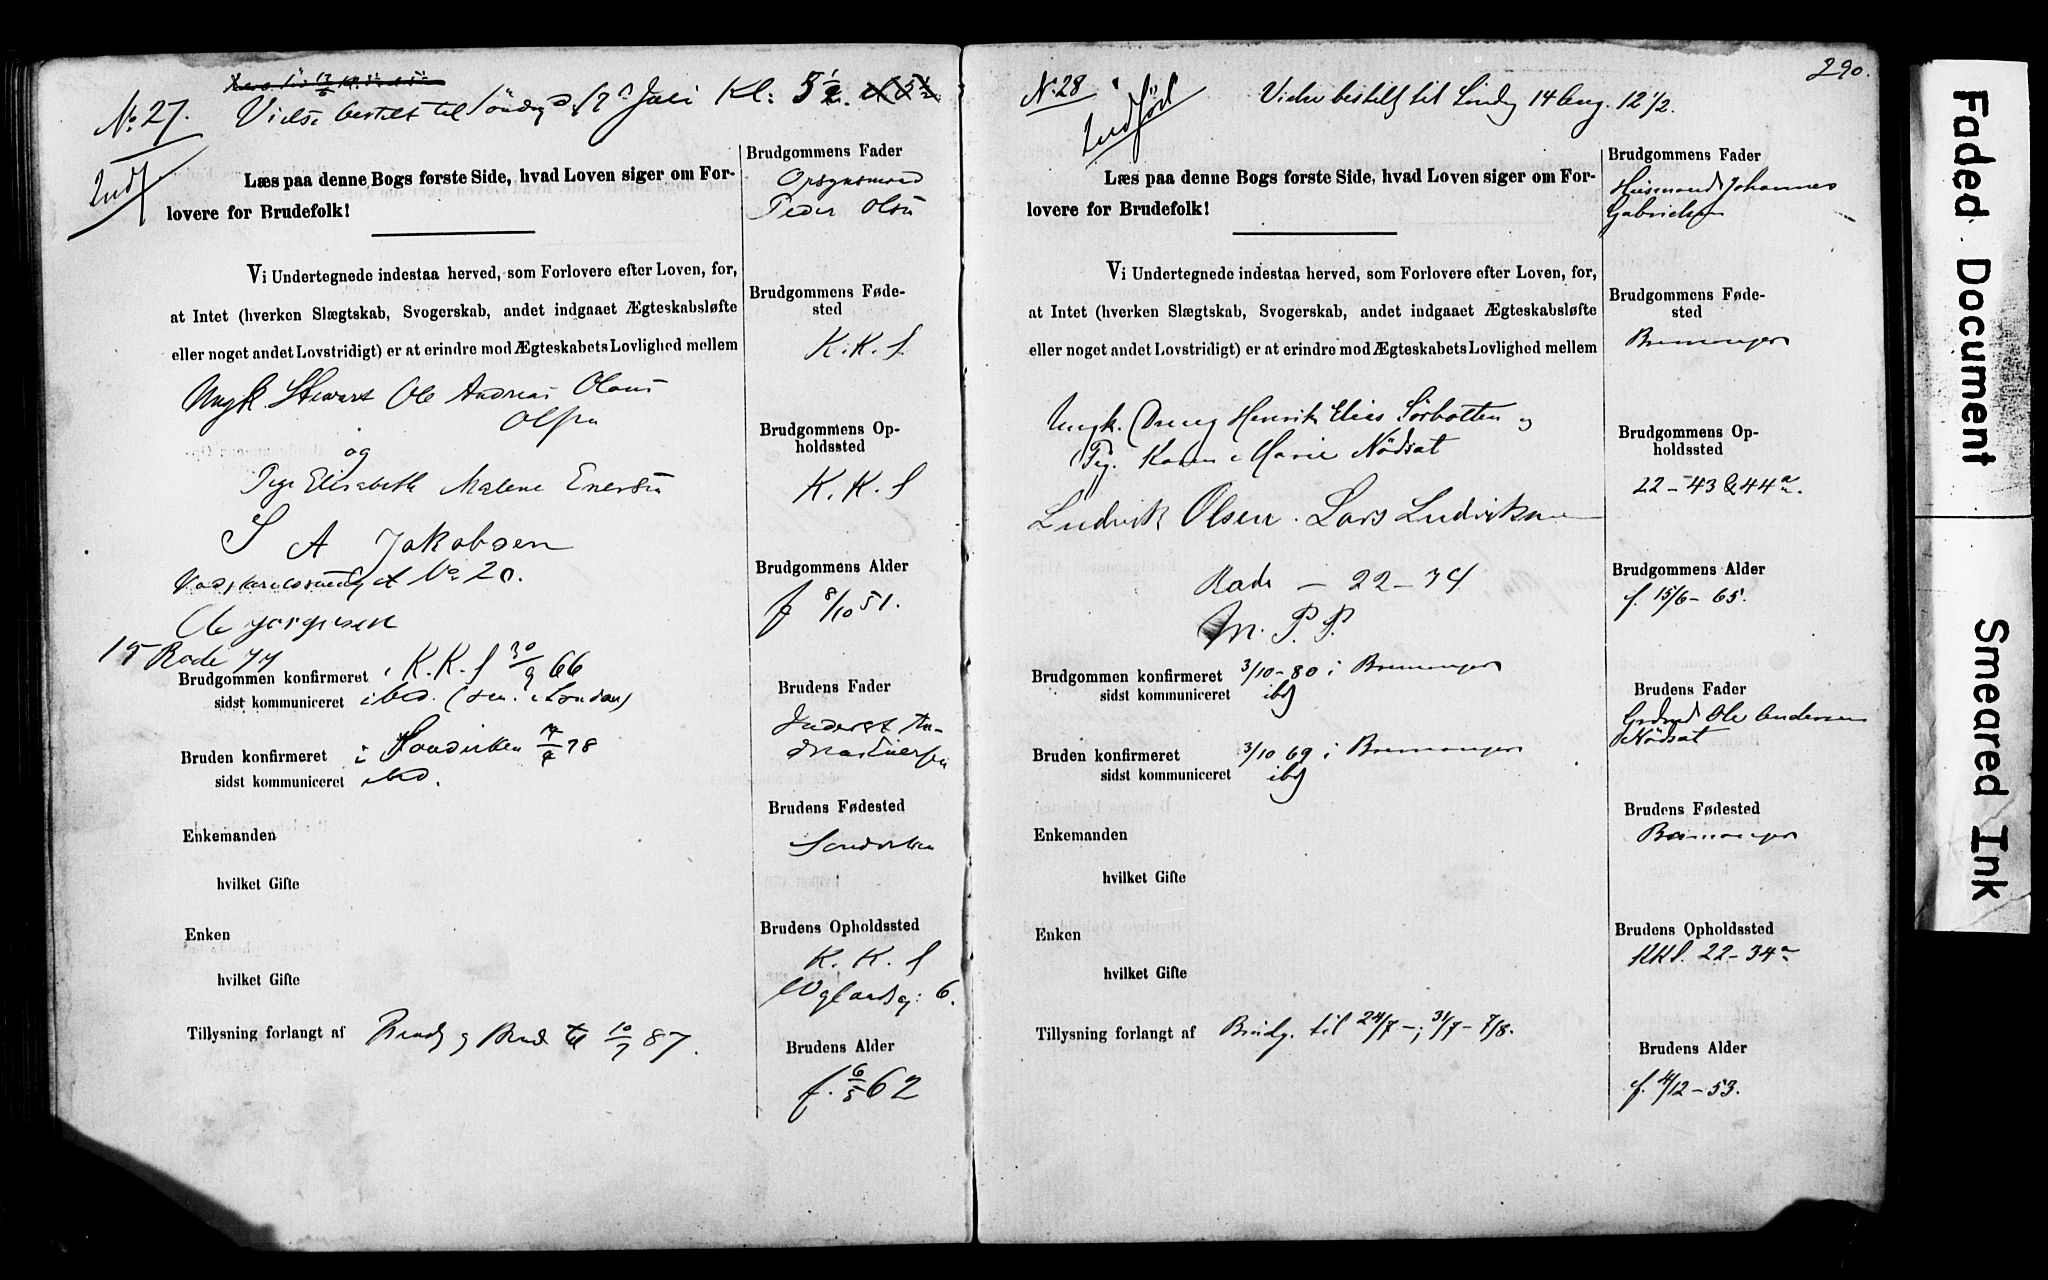 No 27.
Vielse bestilt til Søndag d. 17de Juli Kl: 5 1/2.
Indf
Læs paa denne Bogs første Side, hvad Loven siger om For-
lovere for Brudefolk!
Vi Undertegnede indestaa herved, som Forlovere efter Loven, for,
at Intet (hverken Slægtskab, Svogerskab, andet indgaaet Ægteskabsløfte
eller noget andet Lovstridigt) er at erindre mod Ægteskabets Lovlighed mellem
Ungk. Stewart Ole Andreas Olaus
Olsen
og
Pige Elisabeth Malene Enersen
S A Jakobsen
No 20.
Ole Jørgensen
15 Rode 77
Brudgommen konfirmeret i K.K.S 30/9 66
sidst kommuniceret ibd. (sen. i London)
Bruden konfirmeret i Sandviken 78
sidst kommuniceret ibd.
Enkemanden
hvilket Gifte
Enken
hvilket Gifte
Tillysning forlangt af Brudg og Brud til 10/7 87.
Brudgommens Fader
Opsynsmand
Peder Olsen
Brudgommens Føde-
sted
K.K.S
Brudgommens Op-
holdssted
K.K.S
Brudgommens Alder
f 8/10 51.
Brudens Fader
Brudens Fødested
Sandviken
Brudens Opholdssted
K.K.S
6.
Brudens Alder
f. 6/5 62
290.
No 28
Indført
Vielse bestilt til Søndag 14 Aug. 12 1/2.
Læs paa denne Bogs første Side, hvad Loven siger om For-
lovere for Brudefolk!
Vi Undertegnede indestaa herved, som Forlovere efter Loven, for,
at Intet (hverken Slægtskab, Svogerskab, andet indgaaet Ægteskabsløfte
eller noget andet Lovstridigt) er at erindre mod Ægteskabets Lovlighed mellem
Ungk. Dreng Henrik Elias Sørbotten og
Pig. Karen Marie Nødsæt
Ludvik Olsen. Lars Ludviksen
Rode — 22 — 34
M. P. P.
Brudgommen konfirmeret 3/10 - 80 i Bremanger
sidst kommuniceret ibd
Bruden konfirmeret 3/10 69 i Bremanger
sidst kommuniceret ibd
Enkemanden
hvilket Gifte
Enken
hvilket Gifte
Tillysning forlangt af Brudg. til 24/7 -; 31/7 - 7/8.
Brudgommens Fader
Husmand Johannes
Gabrielsen
Brudgommens Føde-
sted
Bremanger
Brudgommens Op-
holdssted
22 - 43 & 44a.
Brudgommens Alder
f. 15/6 - 65.
Brudens Fader
Grdmd Ole Andersen
Nødsæt
Brudens Fødested
Bremanger
Brudens Opholdssted
KKS. 22 - 34a
Brudens Alder
f. 4/12 - 53.
Faded Document
Smeared Ink